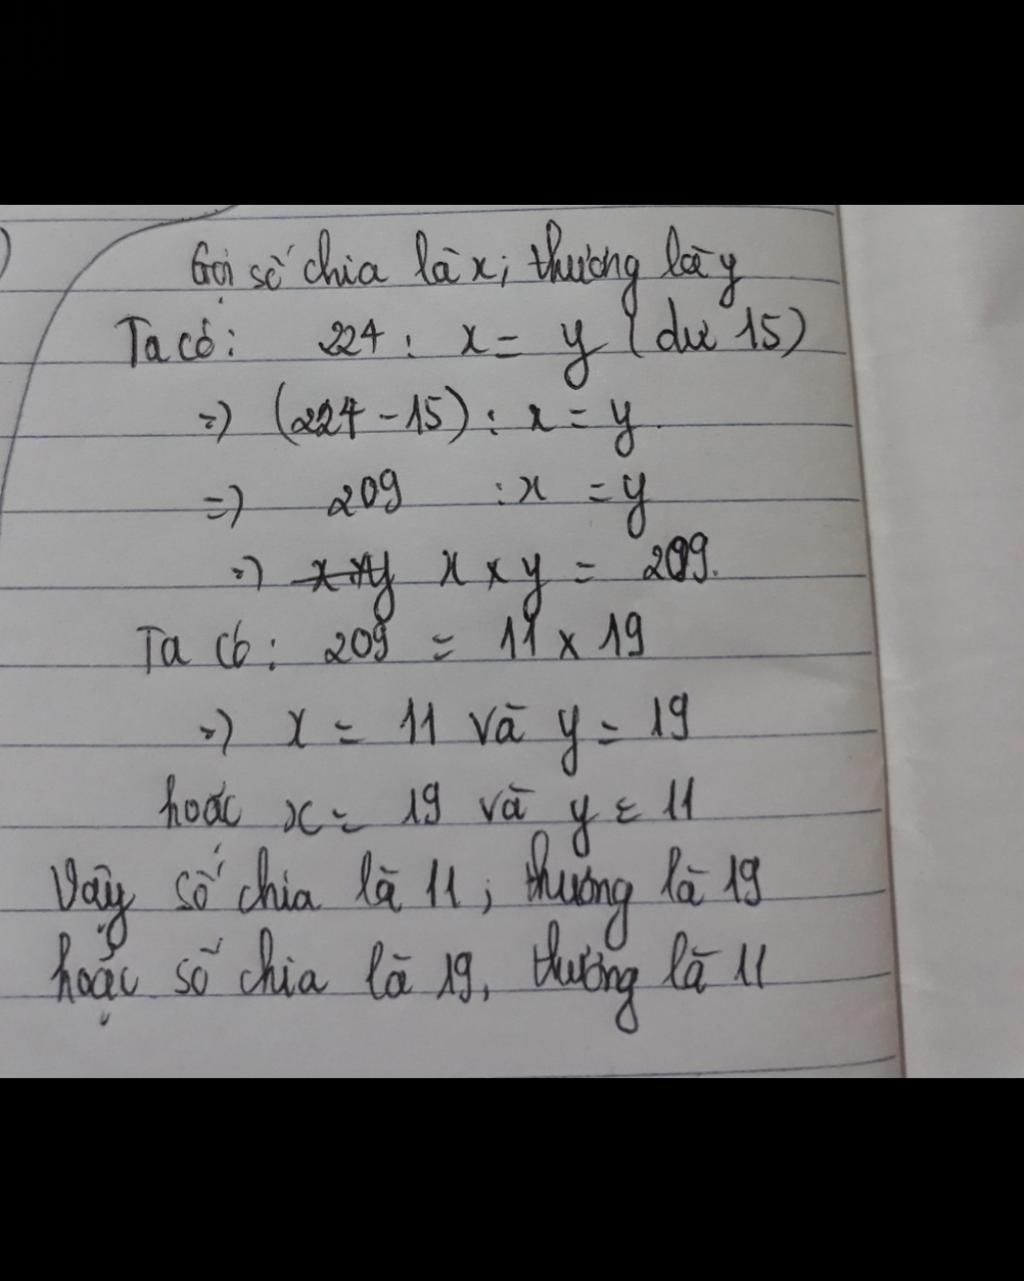 Gọi số chia là x; thương là y
Ta có: 224 : x = y (dư 15)
=> (224 - 15) : x = y.
=> 209 : x = y
=> x x y x x y = 209.
Ta có: 209 = 11 x 19
=> x = 11 và y = 19
hoặc x = 19 và y = 11
Vậy số chia là 11; thương là 19
hoặc số chia là 19, thương là 11